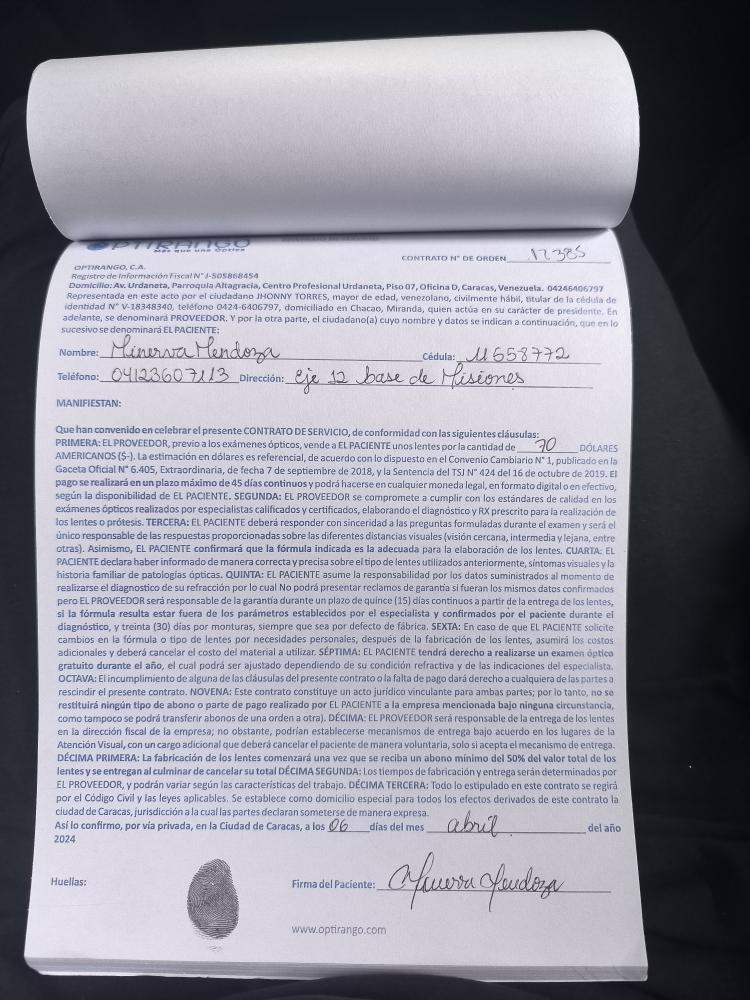 OPTIRANGO
Más que una Óptica
CONTRATO N° DE ORDEN 12385
OPTIRANGO, C.A.
Registro de Información Fiscal N° J-505868454
Domicilio: Av. Urdaneta, Parroquia Altagracia, Centro Profesional Urdaneta, Piso 07, Oficina D, Caracas, Venezuela. 04246406797
Representada en este acto por el ciudadano JHONNY TORRES, mayor de edad, venezolano, civilmente hábil, titular de la cédula de
identidad N° V-18348340, teléfono 0424-6406797, domiciliado en Chacao, Miranda, quien actúa en su carácter de presidente. En
adelante, se denominará PROVEEDOR. Y por la otra parte, el ciudadano(a) cuyo nombre y datos se indican a continuación, que en lo
sucesivo se denominará EL PACIENTE:
Nombre: Minerva Mendoza Cédula: 11658772
Teléfono: 04123607113 Dirección: Eje 12 base de Misiones
MANIFIESTAN:
Que han convenido en celebrar el presente CONTRATO DE SERVICIO, de conformidad con las siguientes cláusulas:
PRIMERA: EL PROVEEDOR, previo a los exámenes ópticos, vende a EL PACIENTE unos lentes por la cantidad de 70 DÓLARES
AMERICANOS ($-). La estimación en dólares es referencial, de acuerdo con lo dispuesto en el Convenio Cambiario N° 1, publicado en la
Gaceta Oficial N° 6.405, Extraordinaria, de fecha 7 de septiembre de 2018, y la Sentencia del TSJ N° 424 del 16 de octubre de 2019. El
pago se realizará en un plazo máximo de 45 días continuos y podrá hacerse en cualquier moneda legal, en formato digital o en efectivo,
según la disponibilidad de EL PACIENTE. SEGUNDA: EL PROVEEDOR se compromete a cumplir con los estándares de calidad en los
exámenes ópticos realizados por especialistas calificados y certificados, elaborando el diagnóstico y RX prescrito para la realización de
los lentes o prótesis. TERCERA: EL PACIENTE deberá responder con sinceridad a las preguntas formuladas durante el examen y será el
único responsable de las respuestas proporcionadas sobre las diferentes distancias visuales (visión cercana, intermedia y lejana, entre
otras). Asimismo, EL PACIENTE confirmará que la fórmula indicada es la adecuada para la elaboración de los lentes. CUARTA: EL
PACIENTE declara haber informado de manera correcta y precisa sobre el tipo de lentes utilizados anteriormente, síntomas visuales y la
historia familiar de patologías ópticas. QUINTA: EL PACIENTE asume la responsabilidad por los datos suministrados al momento de
realizarse el diagnostico de su refracción por lo cual No podrá presentar reclamos de garantía si fueran los mismos datos confirmados
pero EL PROVEEDOR será responsable de la garantía durante un plazo de quince (15) días continuos a partir de la entrega de los lentes,
si la fórmula resulta estar fuera de los parámetros establecidos por el especialista y confirmados por el paciente durante el
diagnóstico, y treinta (30) días por monturas, siempre que sea por defecto de fábrica. SEXTA: En caso de que EL PACIENTE solicite
cambios en la fórmula o tipo de lentes por necesidades personales, después de la fabricación de los lentes, asumirá los costos
adicionales y deberá cancelar el costo del material a utilizar. SÉPTIMA: EL PACIENTE tendrá derecho a realizarse un examen óptico
gratuito durante el año, el cual podrá ser ajustado dependiendo de su condición refractiva y de las indicaciones del especialista.
OCTAVA: El incumplimiento de alguna de las cláusulas del presente contrato o la falta de pago dará derecho a cualquiera de las partes a
rescindir el presente contrato. NOVENA: Este contrato constituye un acto jurídico vinculante para ambas partes; por lo tanto, no se
restituirá ningún tipo de abono o parte de pago realizado por EL PACIENTE a la empresa mencionada bajo ninguna circunstancia,
como tampoco se podrá transferir abonos de una orden a otra). DÉCIMA: EL PROVEEDOR será responsable de la entrega de los lentes
en la dirección fiscal de la empresa; no obstante, podrían establecerse mecanismos de entrega bajo acuerdo en los lugares de la
Atención Visual, con un cargo adicional que deberá cancelar el paciente de manera voluntaria, solo si acepta el mecanismo de entrega.
DÉCIMA PRIMERA: La fabricación de los lentes comenzará una vez que se reciba un abono mínimo del 50% del valor total de los
lentes y se entregan al culminar de cancelar su total DÉCIMA SEGUNDA: Los tiempos de fabricación y entrega serán determinados por
EL PROVEEDOR, y podrán variar según las características del trabajo. DÉCIMA TERCERA: Todo lo estipulado en este contrato se regirá
por el Código Civil y las leyes aplicables. Se establece como domicilio especial para todos los efectos derivados de este contrato la
ciudad de Caracas, jurisdicción a la cual las partes declaran someterse de manera expresa.
Así lo confirmo, por vía privada, en la Ciudad de Caracas, a los 06 días del mes abril del año
2024
Huellas:
Firma del Paciente: Minerva Mendoza
www.optirango.com